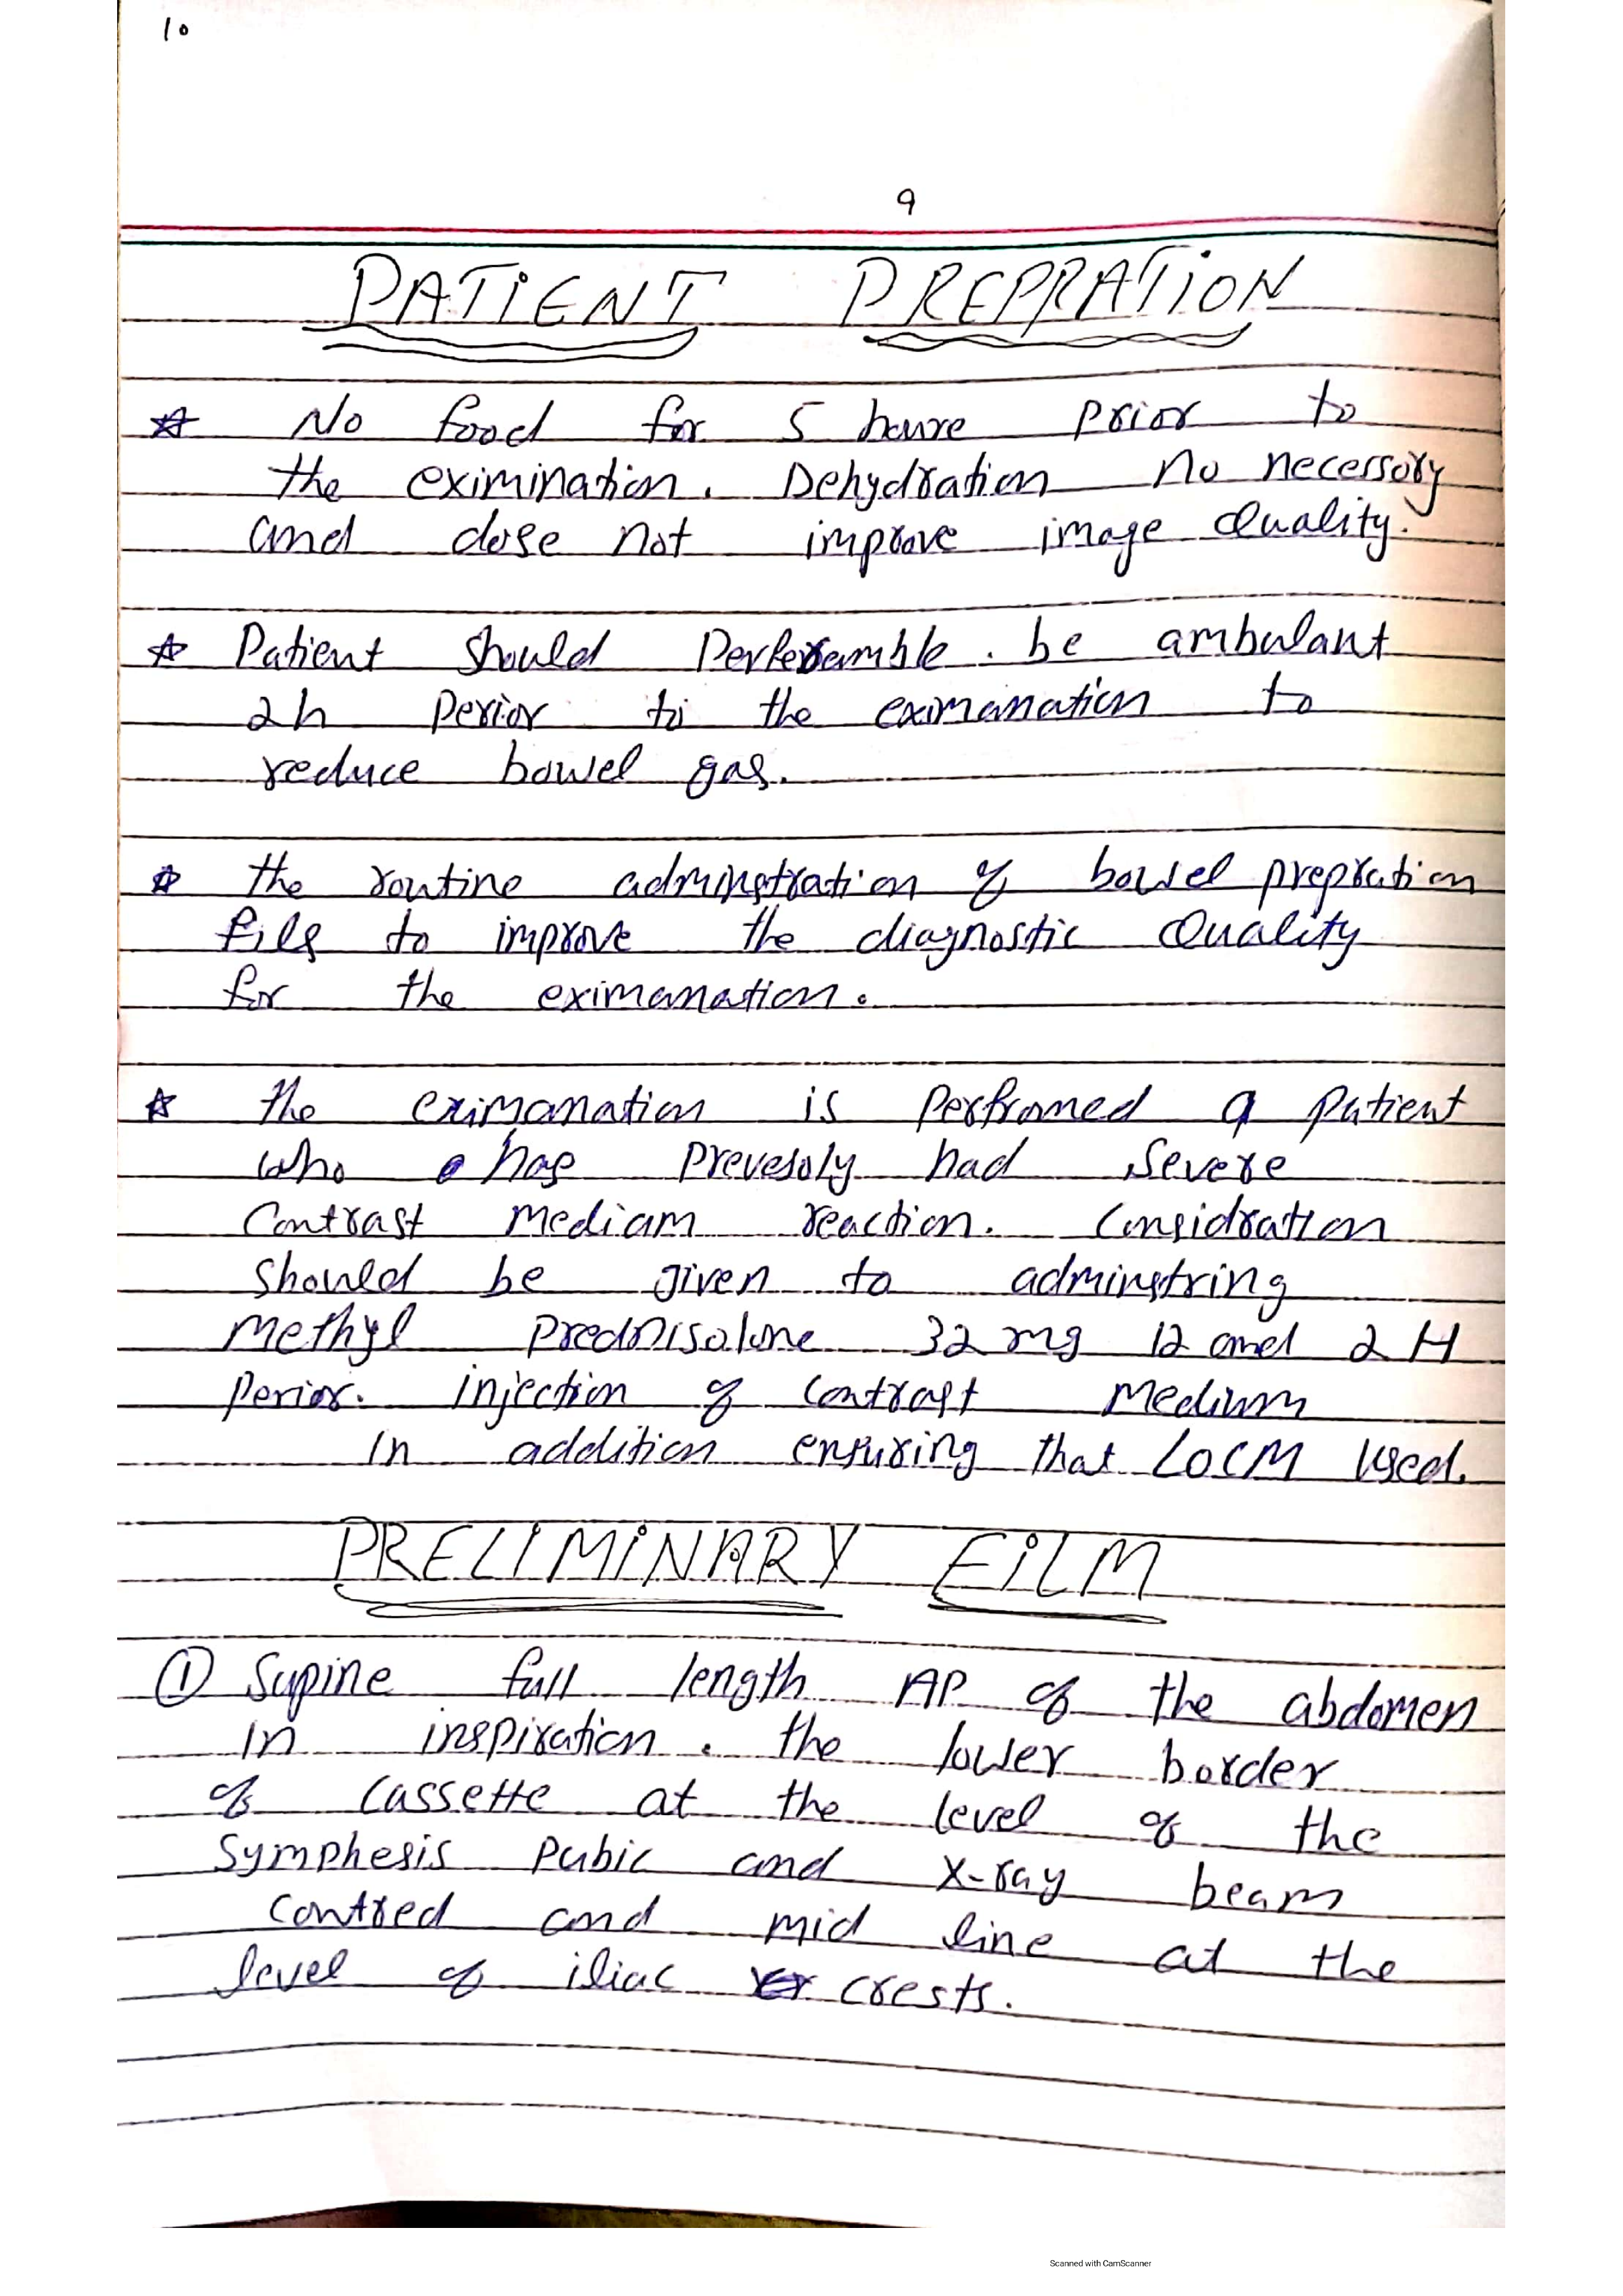 10
9
PATIENT PREPRATION
☆ No food for 5 houre prior to
the eximination. Dehydration no necessory
and dose not improve image Quality.
☆ Patient should be ambulant
2h perior to the eximanation to
reduce bowel gas.
☆ the routine adminstration of bowel prepration
fils to improve the diagnostic Quality
for the eximanation.
☆ the eximanation is perfromed a patient
who has prevesoly had severe
Contrast mediam reaction. Considration
should be given to adminstring
methyl prednisolone 32 mg 12 and 2 H
perior. injection of contrast medium
in addition ensuring that LOCM used.
PRELIMINARY FILM
① Supine full length AP of the abdomen
in inspiration. the lower border
of cassette at the level of the
symphesis pubic and x-ray beam
contred and mid line at the
level of iliac crests.
Scanned with CamScanner